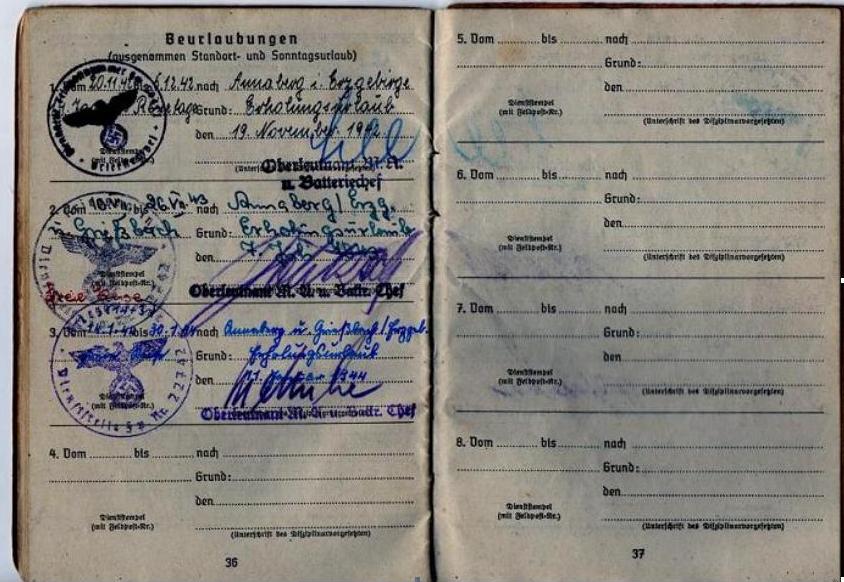 Beurlaubungen
(ausgenommen Standort- und Sonntagsurlaub)
1. Vom 20.11.42 bis 6.12.42 nach Annaberg i. Erzgebirge
Grund: Erholungsurlaub
den 19 November 1942
Dienststempel
(mit Feldpost-Nr.)
Oberleutnant M. A.
u. Batteriechef
2. Vom bis 26.VII.43 nach Annaberg/Erzg.
u. Grießbach Grund: Erholungsurlaub
den
Dienststempel
(mit Feldpost-Nr.)
Freie Reise
Oberleutnant M. A. u. Battr. Chef
3. Vom bis 30.1.44 nach Annaberg u. Grießbach/Erzgeb.
Grund: Erholungsurlaub
den 1944
Dienststempel
(mit Feldpost-Nr.)
Oberleutnant M. A. u. Battr. Chef
Dienststelle Nr. 22742
4. Vom bis nach
Grund:
den
Dienststempel
(mit Feldpost-Nr.)
(Unterschrift des Disziplinarvorgesetzten)
36
5. Vom bis nach
Grund:
den
Dienststempel
(mit Feldpost-Nr.)
(Unterschrift des Disziplinarvorgesetzten)
6. Vom bis nach
Grund:
den
Dienststempel
(mit Feldpost-Nr.)
(Unterschrift des Disziplinarvorgesetzten)
7. Vom bis nach
Grund:
den
Dienststempel
(mit Feldpost-Nr.)
(Unterschrift des Disziplinarvorgesetzten)
8. Vom bis nach
Grund:
den
Dienststempel
(mit Feldpost-Nr.)
(Unterschrift des Disziplinarvorgesetzten)
37